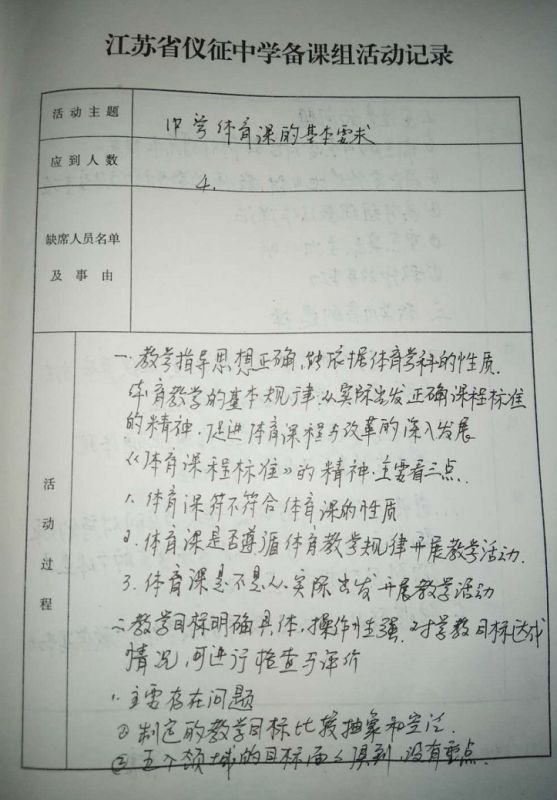 江苏省仪征中学备课组活动记录
活动主题
中学体育课的基本要求
应到人数
4.
缺席人员名单
及事由
活动过程
一、教学指导思想正确,能依据体育学科的性质.
体育教学的基本规律,从实际出发,正确课程标准
的精神.促进体育课程与改革的深入发展
《体育课程标准》的精神.主要看三点.
1. 体育课符不符合体育课的性质
2. 体育课是否遵循体育教学规律开展教学活动.
3. 体育课是不是从实际出发开展教学活动
二、教学目标明确具体,操作性强.对学教目标达成
情况,可进行检查与评价
1.主要存在问题
① 制定的教学目标比较抽象和空泛.
② 五个领域的目标面面俱到,没有重点.